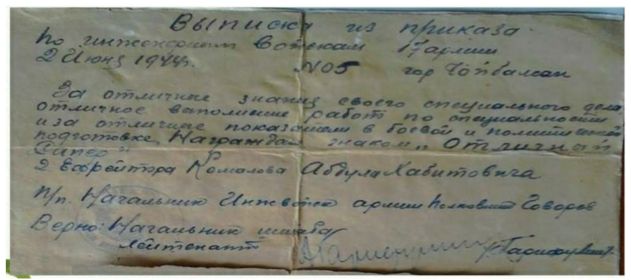 Выписка из приказа
по инженерным войскам 17 армии
2 июня 1944г. №05 гор Чойбалсан
За отличные знания своего специального дела
отличное выполнение работ по специальности
и за отличные показатели в боевой и политической
подготовке, Награждаю знаком „Отличный
Сапер"
2 Ефрейтора Комалова Абдула Хабитовича
П/п. Начальник Инжвойск армии полковник Говоров
Верно: Начальник штаба
лейтенант